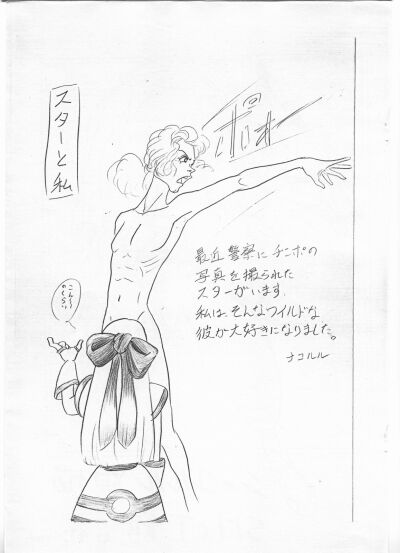 スターと私
ポゥオー
こんくらい
のくらい
最近警察にチンポの
写真を撮られた
スターがいます。
私は、そんなワイルドな
彼が大好きになりました。
ナコルル